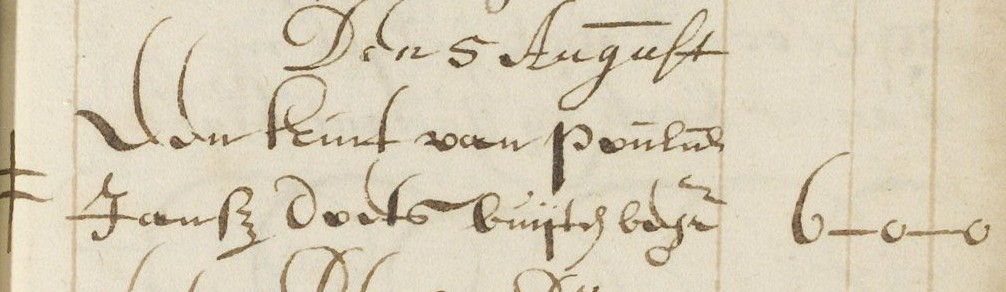 Den 5 August
Een kint van Poulus
Jansz Doets buijten begr 6-0-0